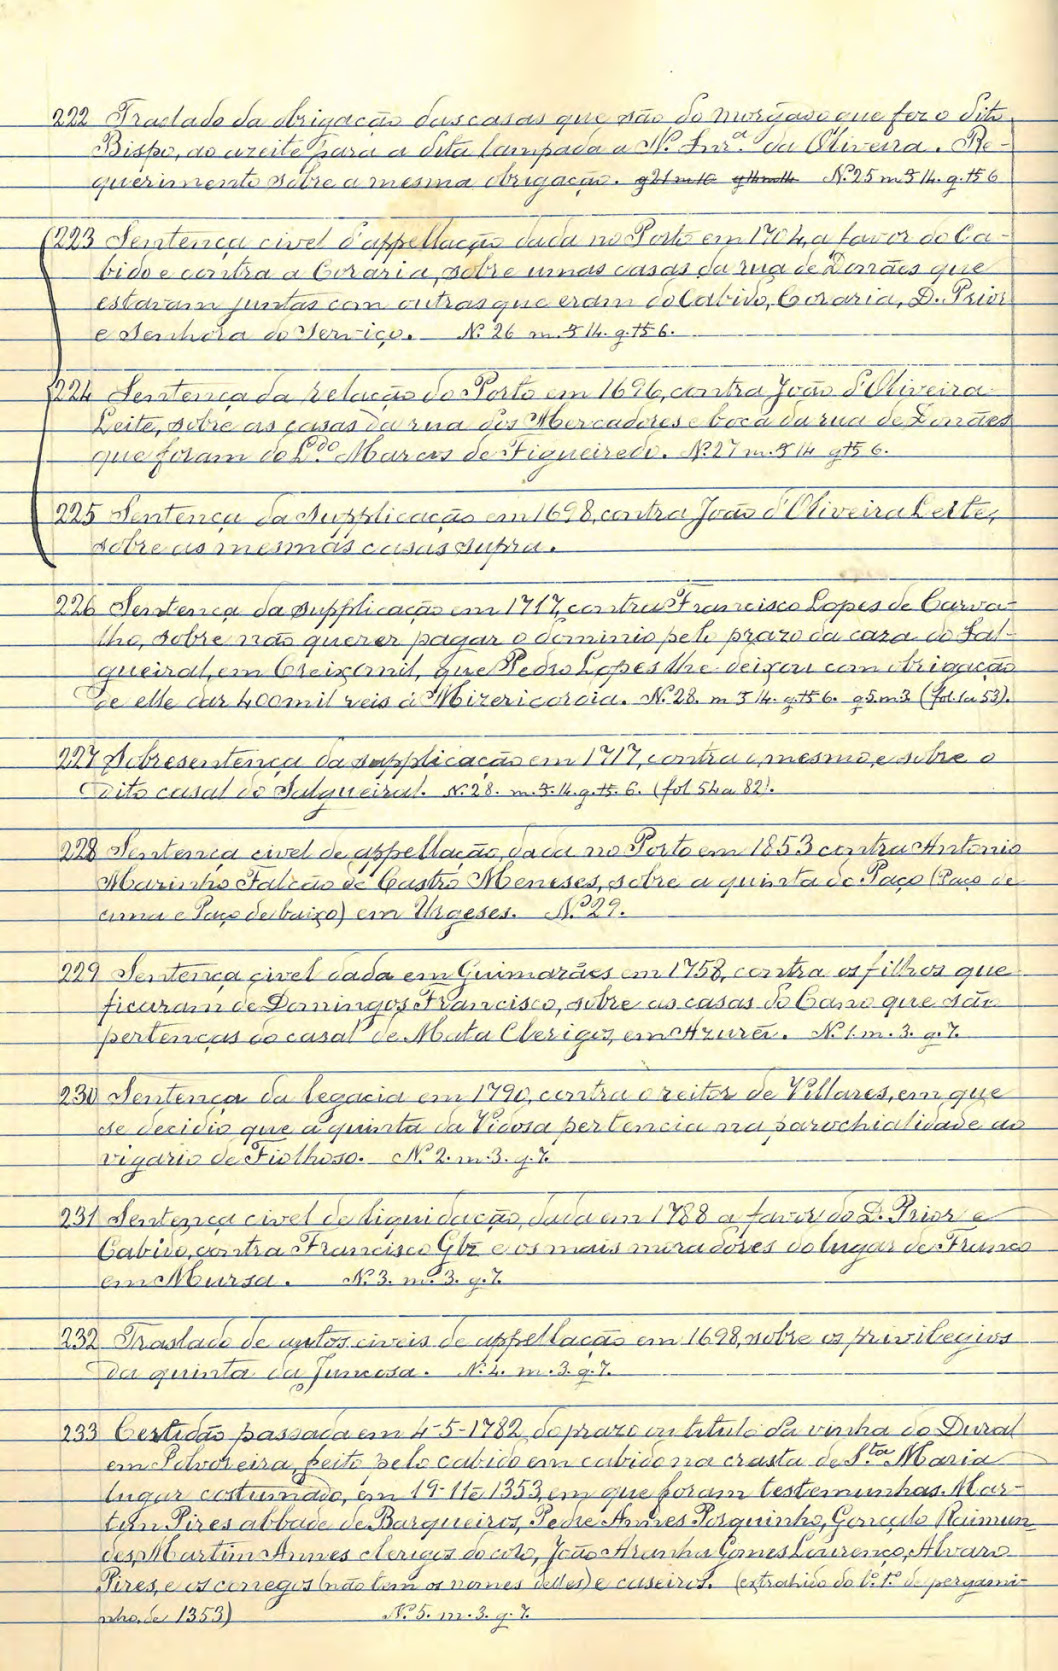 222 Traslado da obrigação das casas que são do morgado que fez o dito
Bispo, do azeite para a dita lampada a N. Snr.ª da Oliveira. Re-
querimento sobre a mesma obrigação. Nº 25 m. 5 14. g. 15 6
223 Sentença civel d'appellação dada no Porto em 1704, a favor do Ca-
bido e contra a Coraria, sobre umas casas da rua de Donães que
estavam juntas com outras que eram do Cabido, Coraria, D. Prior
e Senhora do Serviço. Nº 26 m. 5 14. g. 15 6.
224 Sentença da relação do Porto em 1696, contra João d'Oliveira
Leite, sobre as casas da rua dos Mercadores e boca da rua de Donães
que foram do L.do Marcos de Figueiredo. Nº 27 m. 5 14 g 15 6.
225 Sentença da supplicação em 1698, contra João d'Oliveira Leite,
sobre as mesmas casas supra.
226 Sentença da supplicação em 1717, contra Francisco Lopes de Carva-
lho, sobre não querer pagar o dominio pelo prazo da caza do Sal-
gueiral, em Creixomil, que Pedro Lopes lhe deixou com obrigação
de elle dar 400 mil reis á Mizericordia. Nº 28. m 5 14. g. 15 6. g 5. m 3 (fol. 1 a 53).
227 Sobresentença da supplicação em 1717, contra o mesmo, e sobre o
dito casal do Salgueiral. Nº 28. m. 5. 14. g. 15. 6. (fol 54 a 82).
228 Sentença civel de appellação, dada no Porto em 1853 contra Antonio
Marinho Falcão de Castro Meneses, sobre a quinta do Paço (Paço de
cima e Paço de baixo) em Urgeses. Nº 29.
229 Sentença civel dada em Guimarães em 1758, contra os filhos que
ficaram de Domingos Francisco, sobre as casas do Cano que são
pertenças do casal de Mata Clerigos, em Azurem. Nº 1. m. 3. g. 7.
230 Sentença da legacia em 1790, contra o reitor de Villares, em que
se decidio que a quinta da Vidosa pertencia na parochialidade ao
vigario de Fiolhoso. Nº 2. m. 3. g. 7.
231 Sentença civel de liquidação, dada em 1788 a favor do D. Prior e
Cabido, contra Francisco Glz e os mais moradores do lugar de Franco
em Mursa. Nº 3. m. 3. g. 7.
232 Traslado de autos civeis de appellação em 1698, sobre os privilegios
da quinta da Juncosa. Nº 4. m. 3. g. 7.
233 Certidão passada em 4-5-1782, do prazo ou titulo da vinha do Dural
em Polvoreira, feito pelo cabido em cabido na crasta de S.ta Maria
lugar costumado, em 19-11-1353, em que foram testemunhas Mar-
tim Pires abbade de Barqueiros, Pedre Annes Porquinho, Gonçalo Raimun-
des, Martim Annes clerigos do coro, João Aranha Gomes Lourenço, Alvaro
Pires, e os conegos (não tem os nomes delles) e caseiros. (extrahido do l.º t.º de pergami-
nho, de 1353) Nº 5. m. 3. g. 7.